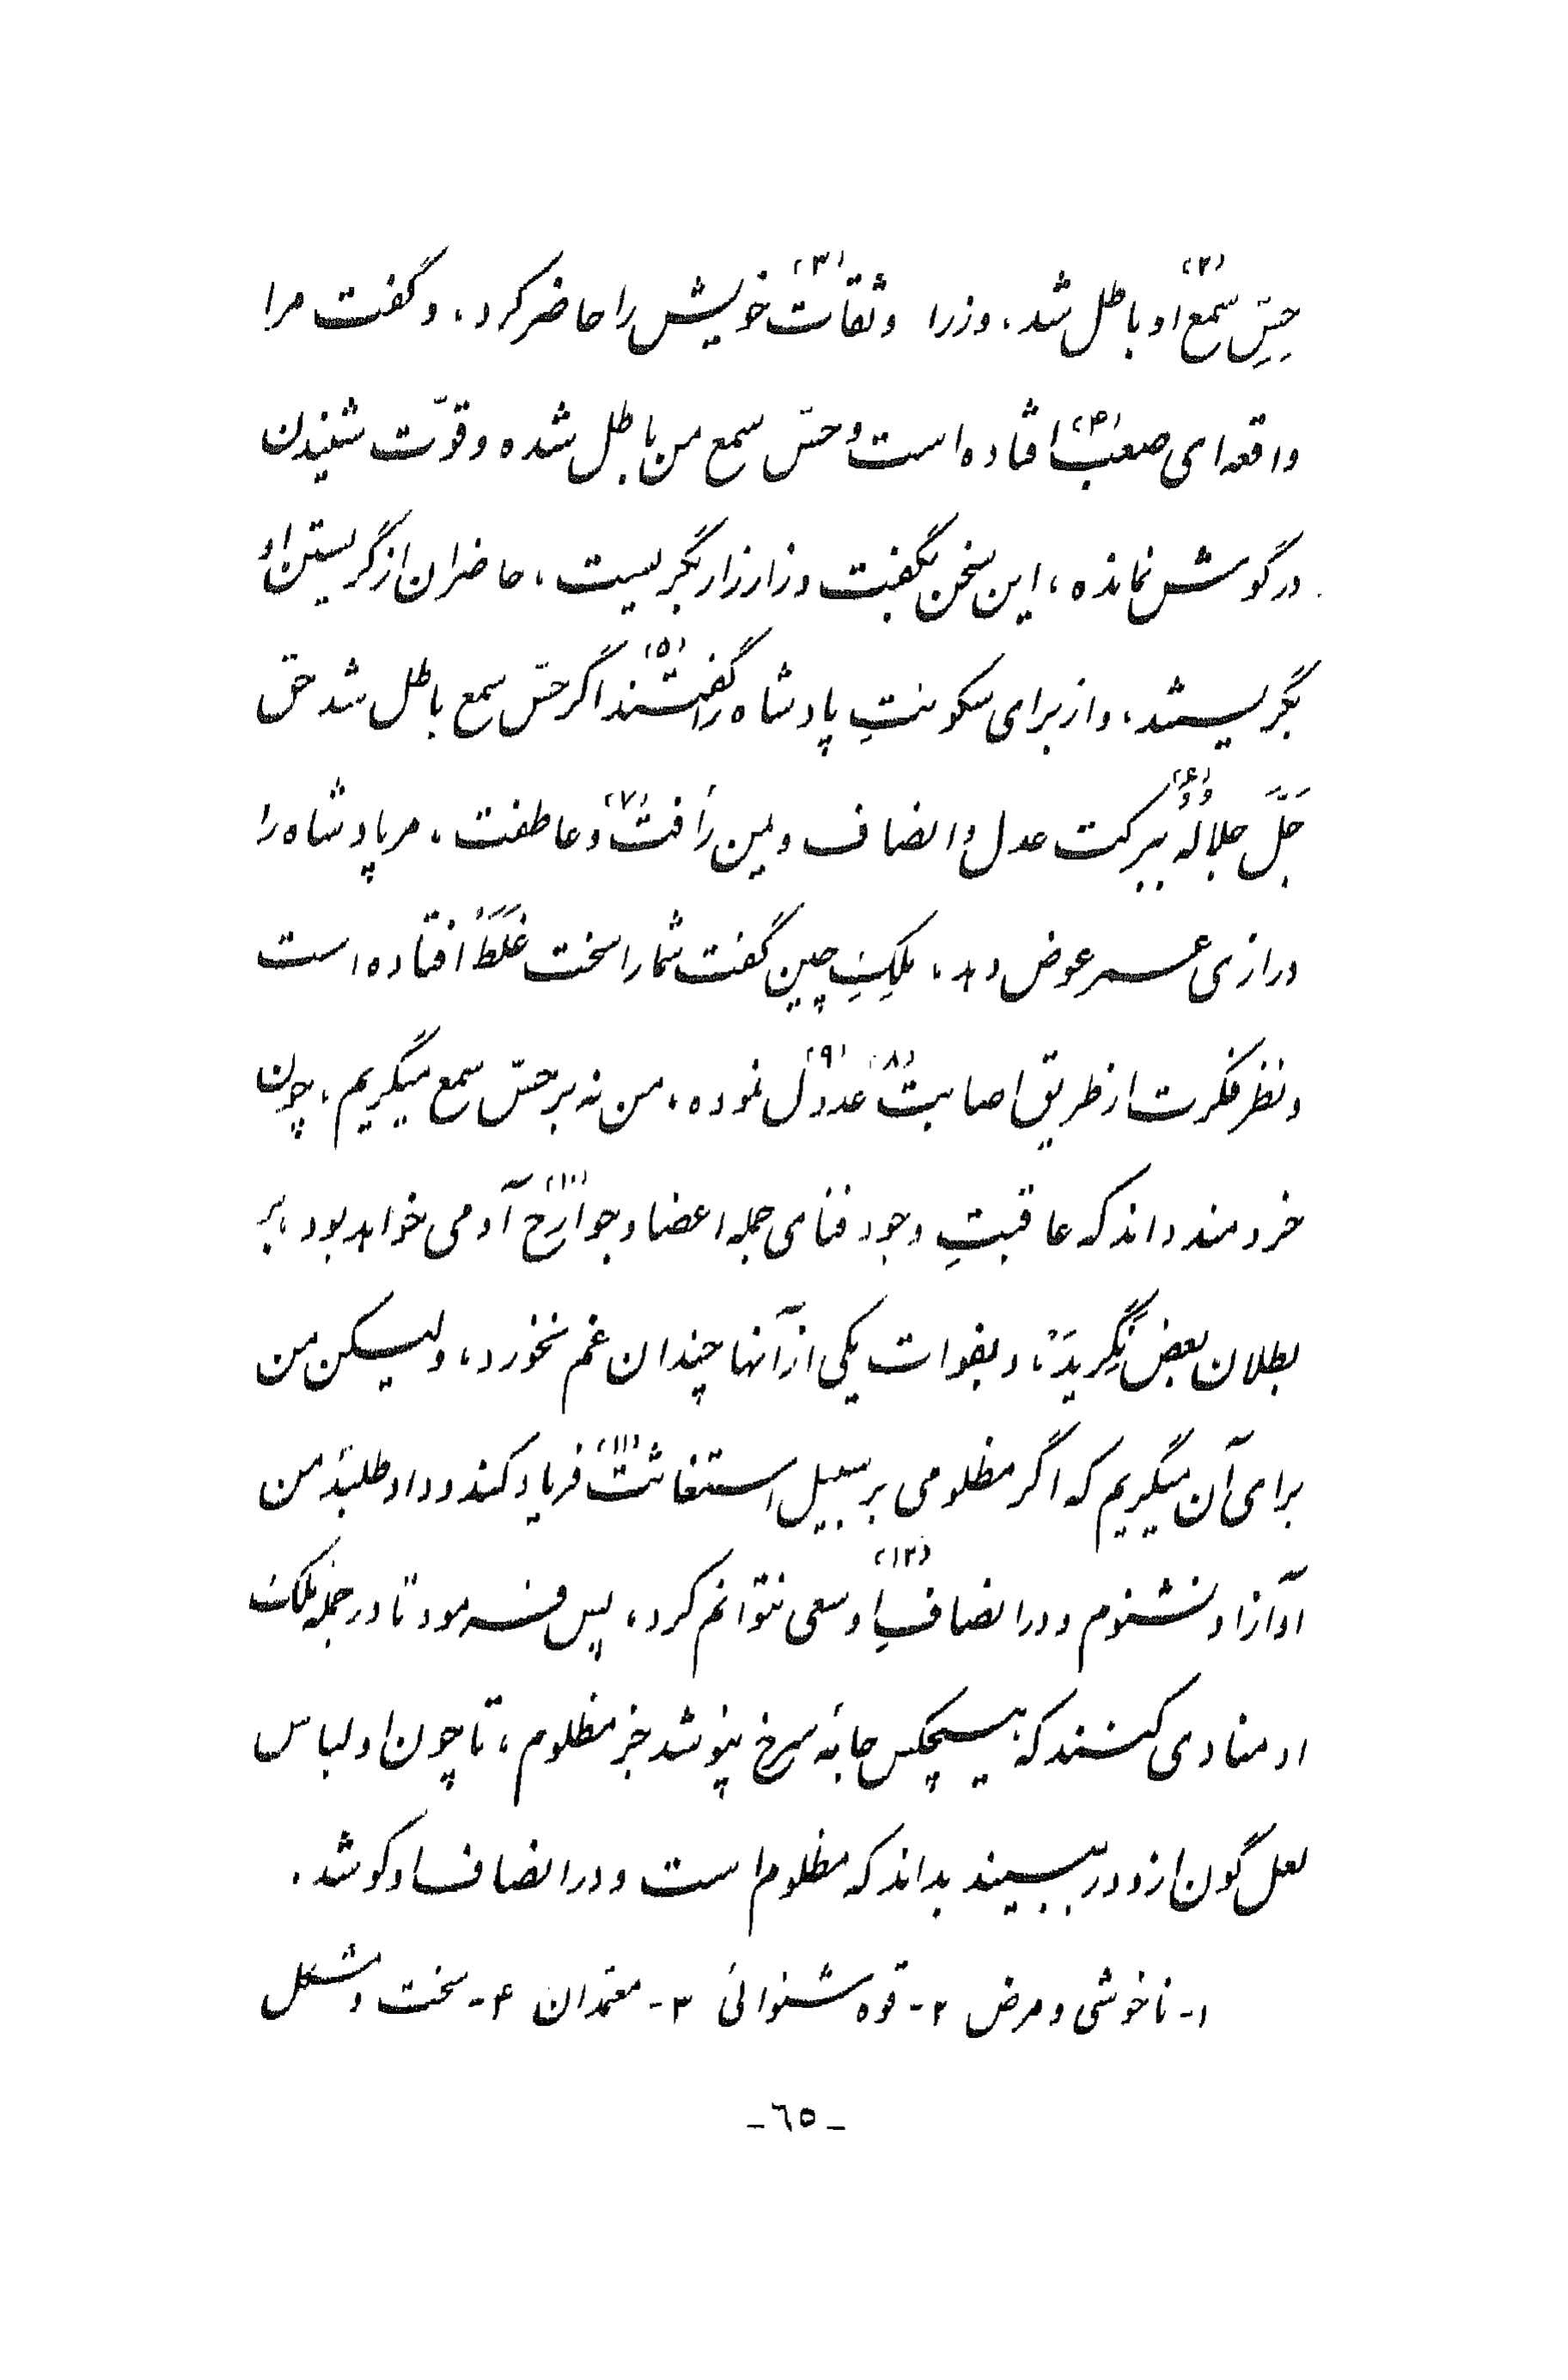 حِسِّ سمع(۲) او باطل شد، وزرا وثقات(۳) خویش را حاضر کرد، و گفت مرا
واقعه‌ای صعب(۴) افتاده است و حسّ سمع من باطل شده و قوّت شنیدن
در گوش نمانده، این سخن بگفت و زار زار بگریست، حاضران از گریستن او
بگریستند، و از برای سکونتِ پادشاه را گفتند(۵) اگر حسّ سمع باطل شد حق
جَلَّ جلالُهُ(۶) ببرکت عدل و انصاف و یمن رأفت(۷) و عاطفت، مر پادشاه را
درازی عمر عوض دهد، ملِکِ چین گفت شما را سخت غَلَطْ افتاده است
و نظر فکرت از طریق اصابت(۸) عدول(۹) نموده، من نه بر حسّ سمع میگریم، چون
خردمند داند که عاقبتِ وجود فنای جمله اعضا و جوارح(۱۰) آدمی خواهد بود، بر
بطلان بعض نَگِریَدْ، و بفوات یکی از آنها چندان غم نخورد، ولیکن من
برای آن میگریم که اگر مظلومی بر سبیل استغاثت(۱۱) فریاد کند و داد طلبد من
آواز او نشنوم و در انصافِ(۱۲) او سعی نتوانم کرد، پس فرمود تا در جمله ملک
او منادی کنند که هیچکس جامهٔ سرخ نپوشد جز مظلوم، تا چون او لباس
لعل گون از دور ببیند بداند که مظلوم است و در انصاف او کوشد.
۱- ناخوشی و مرض ۲- قوه شنوائی ۳- معتمدان ۴- سخت و مشکل
-٦٥-